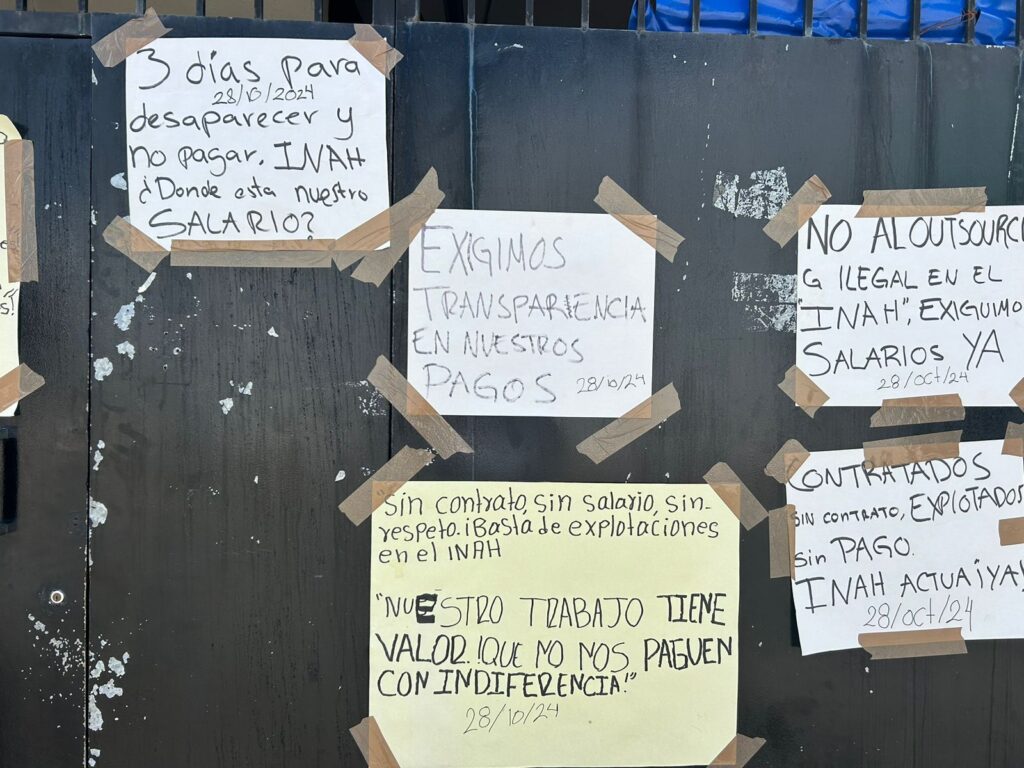 3 días para
28/10/2024
desaparecer y
no pagar. INAH
¿Donde esta nuestro
SALARIO?
EXIGIMOS
TRANSPARIENCIA
EN NUESTROS
PAGOS 28/10/24
NO AL OUTSOURCI
G ILEGAL EN EL
"INAH", EXIGUIMO
SALARIOS YA
28/oct/24
"Sin contrato, sin salario, sin
respeto. ¡Basta de explotaciones
en el INAH
"NUESTRO TRABAJO TIENE
VALOR. ¡QUE NO NOS PAGUEN
CON INDIFERENCIA!"
28/10/24
CONTRATADOS
SIN CONTRATO, EXPLOTADOS
sin PAGO.
INAH ACTUA ¡YA!
28/oct/24